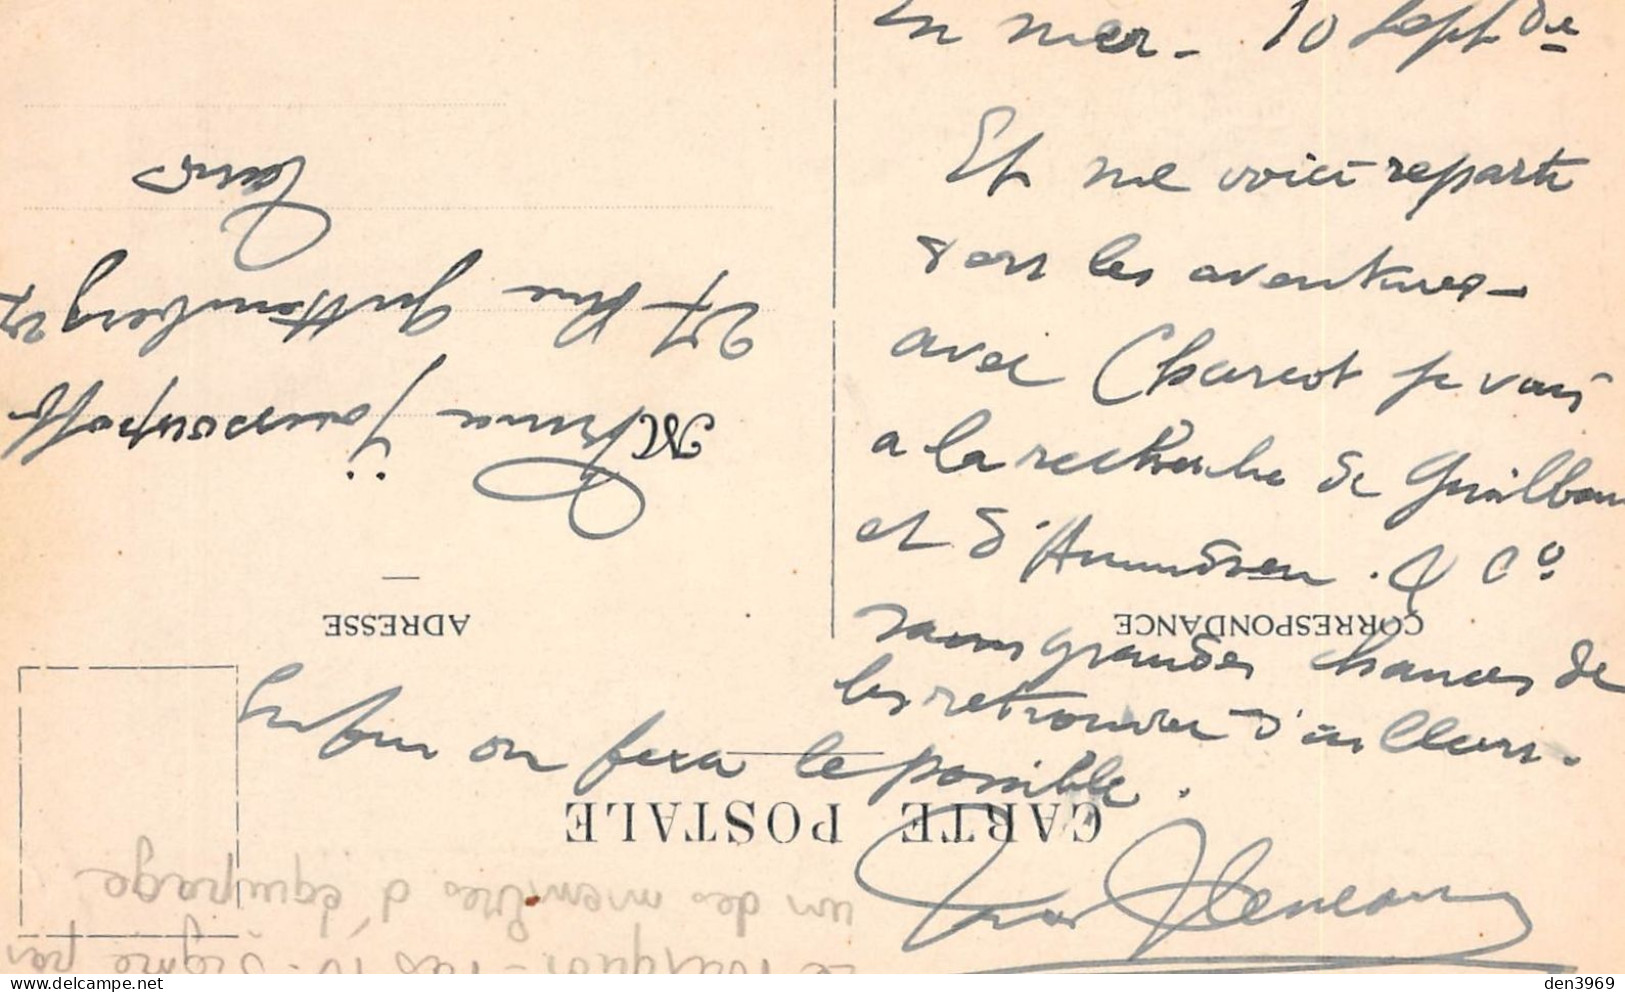 En mer - 10 Sept dre
Et me voici reparti
vers les aventures -
avec Charcot je vais
a la recherche de Guilbau
et d'Amundsen . & Co
sans grandes chances de
les retrouver d'ailleurs.
Enfin on fera le possible.
CARTE POSTALE
CORRESPONDANCE
ADRESSE
M Prince Youssoupoff
27 Rue Guttemberg 27
Paris
Le Pourquoi-Pas IV. Signé par
un des membres d'équipage
den3969